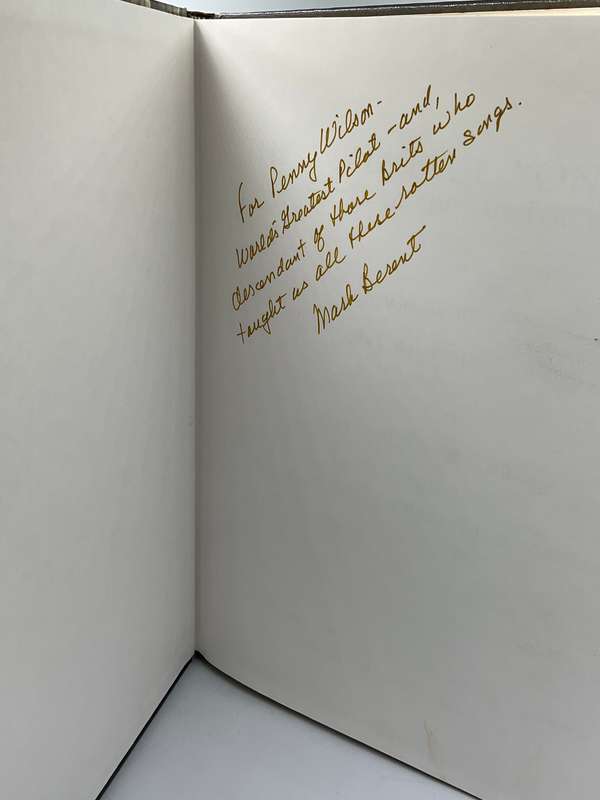 For Penny Wilson -
World's Greatest Pilot - and,
descendant of those Brits who
taught us all these rotten songs.
Mark Berent